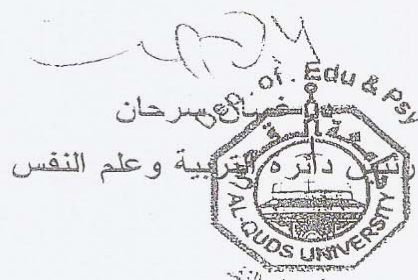 Dep. of. Edu & Psy
سرحان
رئيس دائرة التربية وعلم النفس
AL-QUDS UNIVERSITY